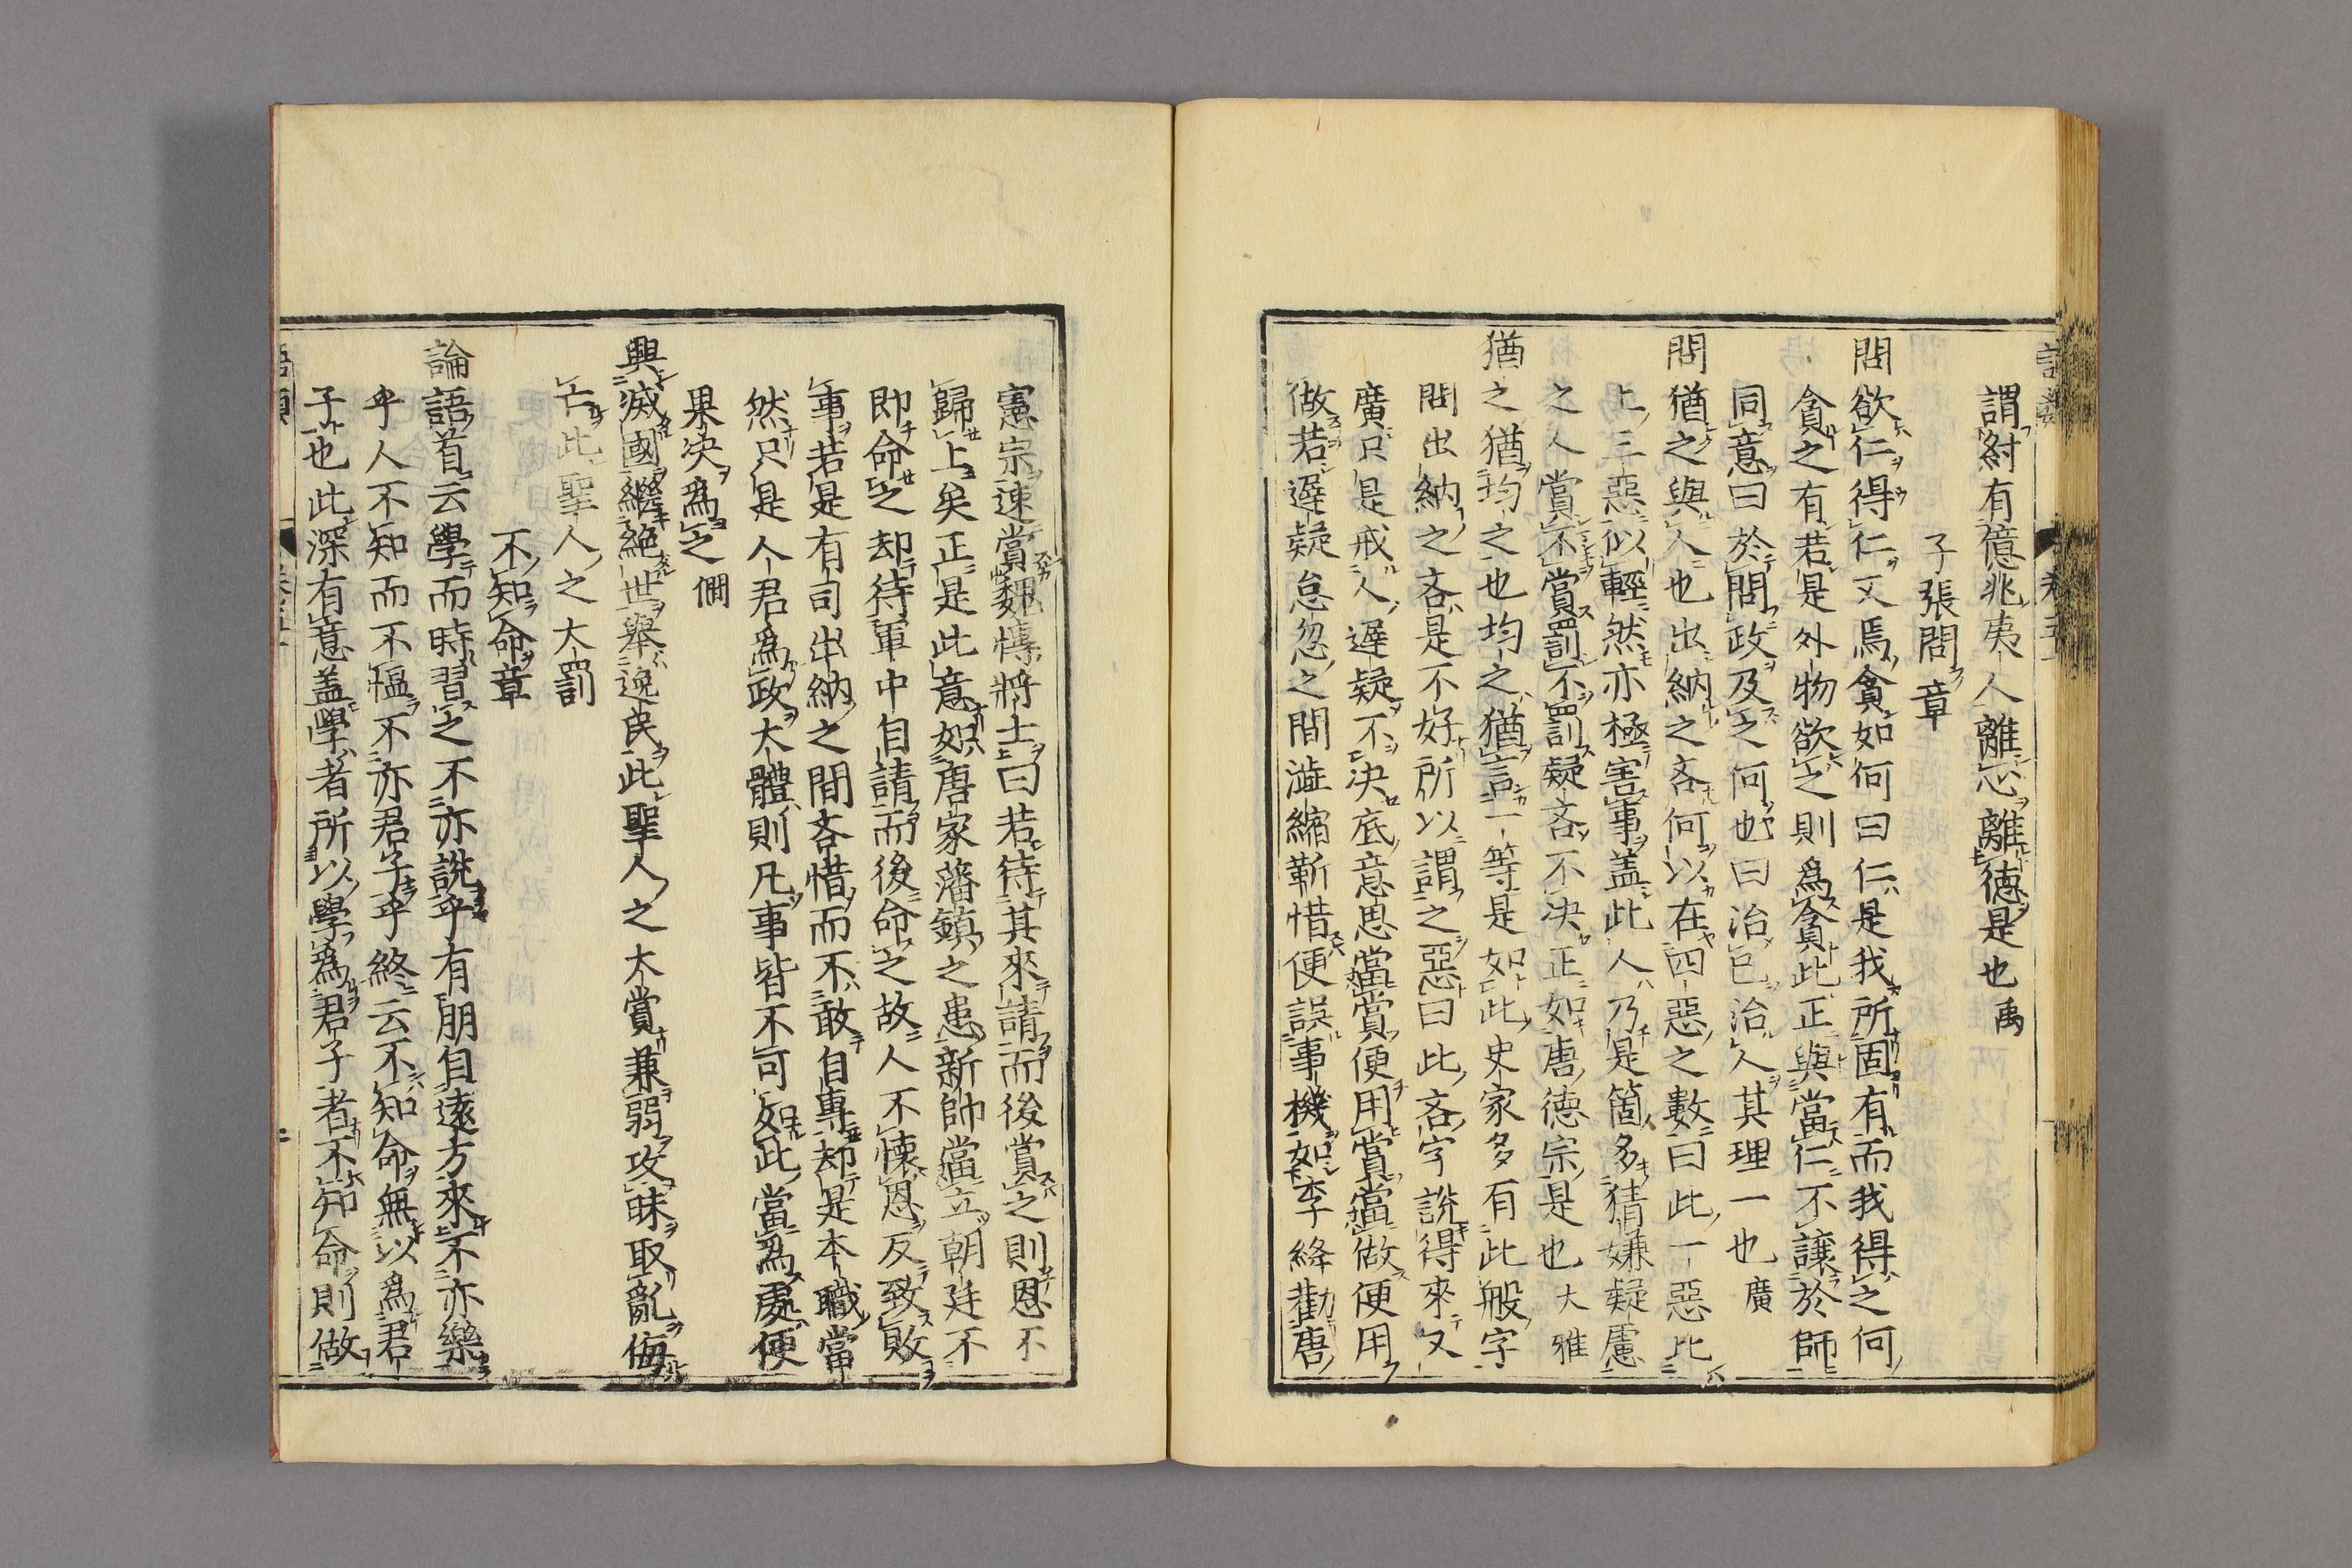 謂紂有億兆夷人離心離徳是也禹
子張問章
問欲仁得仁又焉貪如何曰仁是我所固有而我得之何
貪之有若是外物欲之則爲貪此正與當仁不讓於師
同意曰於問政及之何也曰治己治人其理一也廣
問猶之與人也出納之吝何以在四惡之數曰此一惡比
上三惡似輕然亦極害事盖此人乃是箇多猜嫌疑慮
之人賞不賞罰不罰疑吝不决正如唐徳宗是也大雅
猶之猶均之也均之猶言一等是如此史家多有此般字
問出納之吝是不好所以謂之惡曰此吝字說得來又
廣只是戒人遲疑不决底意思當賞便用賞當做便用
做若遲疑怠忽之間澁縮靳惜便誤事機如李絳勸唐
憲宗速賞魏博將士曰若待其來請而後賞之則恩不
歸上矣正是此意如唐家藩鎮之患新帥當立朝廷不
即命之却待軍中自請而後命之故人不懐恩反致敗
事若是有司出納之間吝惜而不敢自專却是本職當
然只是人君爲政大體則凡事皆不可如此當爲處便
果决爲之僩
興滅國繼絶世舉逸民此聖人之大賞兼弱攻昧取亂侮
亡此聖人之大罰
不知命章
論語首云學而時習之不亦說乎有朋自遠方來不亦樂
乎人不知而不愠不亦君子乎終云不知命無以爲君
子也此深有意盖學者所以學爲君子者不知命則做